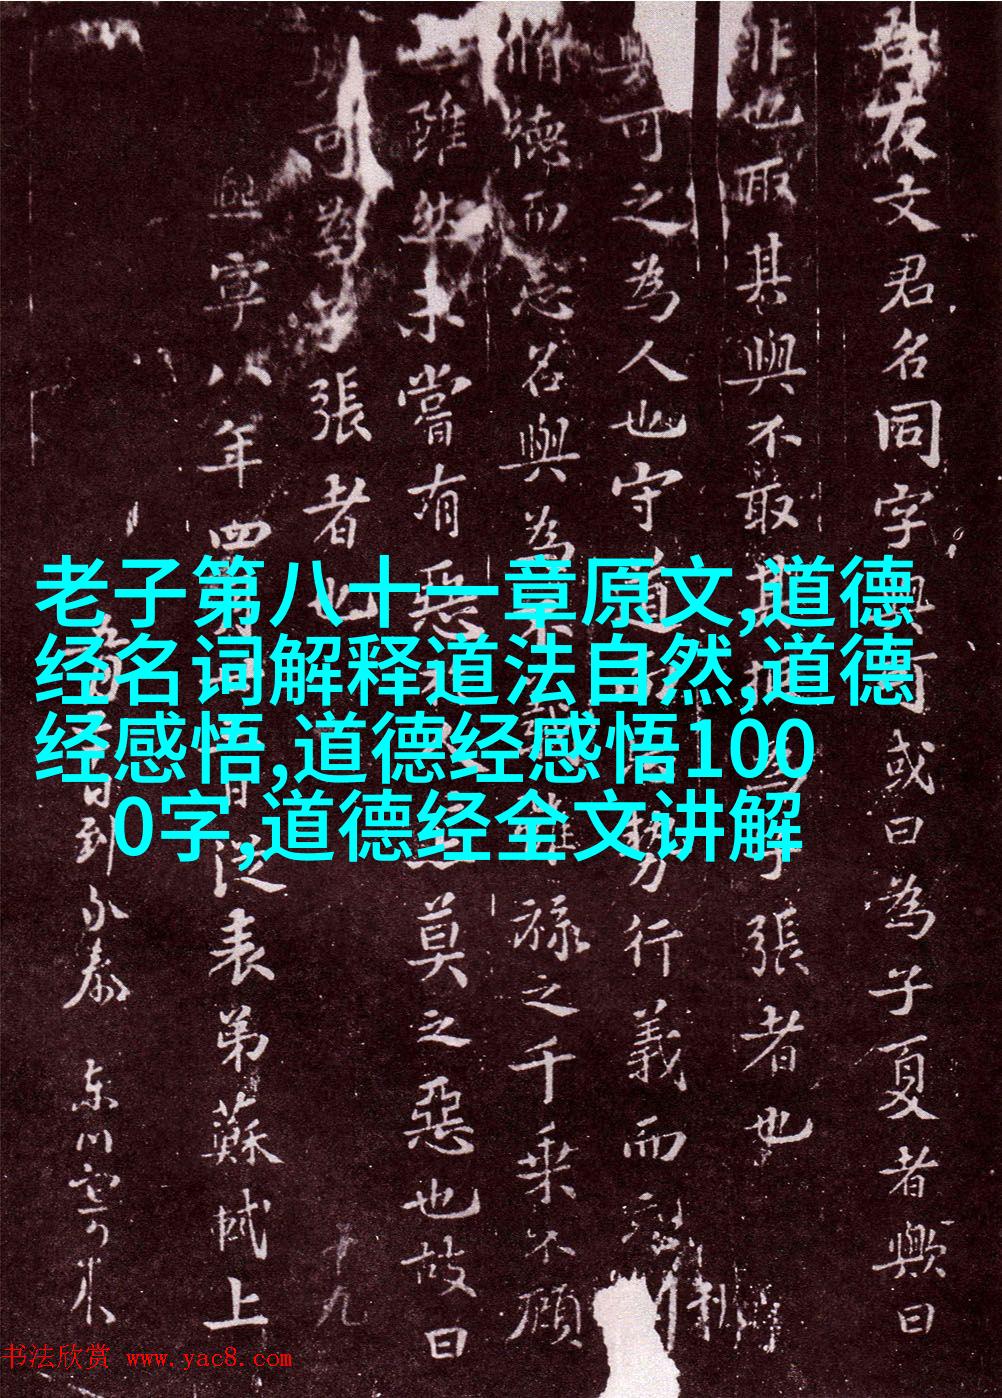 老子第八十一章原文,道德
经名词解释道法自然,道德
经感悟,道德经感悟100
0字,道德经全文讲解
友文君名同字與可或曰為子夏者歟曰
非也取其與不取其子張者也
與可之為人也守道勢行義而忘
脩德而忘名與為祿之千乘不顧
雖然未嘗有惡莫之惡也故曰
可為子張者也
熙寧八年四從表弟蘇軾上
日到永泰
书法欣赏 www.yac8.com